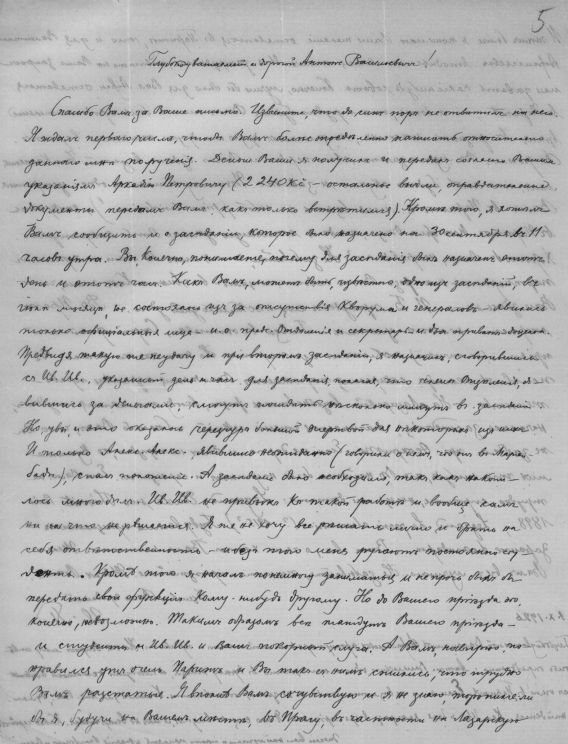 5
Глубокоуважаемый и дорогой Антон Васильевич!
Спасибо Вам за Ваше письмо. Извините, что до сих пор не ответил на него.
Я ждал первого числа, чтобы Вам более определенно написать относительно
данного мне поручения. Деньги Ваши я получил и передал согласно Вашим
указаниям Аркадию Петровичу (2240 Kč – остальное вышлю, оправдательные
документы передам Вам, как только встретимся). Кроме того, я хотел
Вам сообщить и о заседании, которое было назначено на 30 сентября в 11
часов утра. Вы, конечно, понимаете, почему для заседания был назначен этот
день и этот час. Как Вам, может быть, известно, одно из заседаний, в
месяца, не состоялось из за отсутствия кворума и генералов – явились
только официальные лица – и.о. пред. Отделения и секретарь и два приват-доцента.
Предвидя такую же неудачу и при втором заседании, я назначил, сговорившись
с Ив. Ив., указанный день и час для заседания, полагая, что члены Отделения, я-
вившись за деньгами, смогут посидеть несколько минут в заседании
Но увы, и это оказалось чересчур большой жертвой для некоторых из них
И только Алекс. Алекс. явившись неожиданно (говорили о нем, что он в Мариен-
баде), спас положение. А заседание было необходимо, так как накопи-
лось много дел. Ив. Ив. не привык к такой работе и вообще сам
ни на что не решается. Я же не хочу все решать лично и брать на
себя ответственность – и без того меня ругают постоянно
Кроме того я начал понемногу заниматься и непрочь был бы
передать свои функции кому-нибудь другому. Но до Вашего приезда это,
конечно, невозможно. Таким образом все ждут Вашего приезда –
и студенты и Ив. Ив. и Ваш покорный слуга. А Вам, наверно, по-
нравился уж очень Париж и Вы так с ним сжились, что трудно
Вам расстаться. Я вполне Вам сочувствую и я не знаю, торопился ли
бы я, будучи на Вашем месте, в Прагу, в частности на Лазарскую